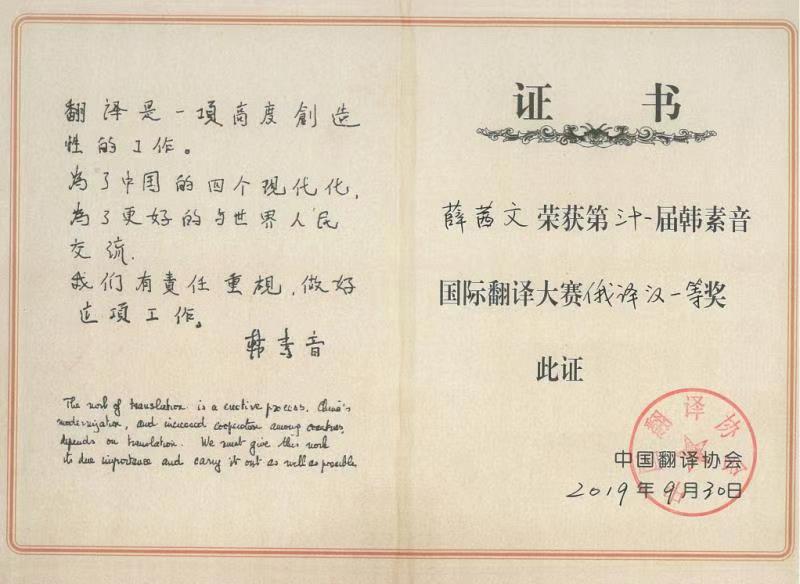 翻译是一項高度創造
性的工作。
为了中国的四个现代化,
为了更好的与世界人民
交流.
我们有責任重視,做好
这項工作。
韩素音
The work of translation is a creative process. China's
modernization, and increased cooperation among countries,
depends on translation. We must give this work
its due importance and carry it out as well as possible.
证 书
薛茜文荣获第三十一届韩素音
国际翻译大赛俄译汉一等奖
此证
中国翻译协会
2019年9月30日
中国翻译协会